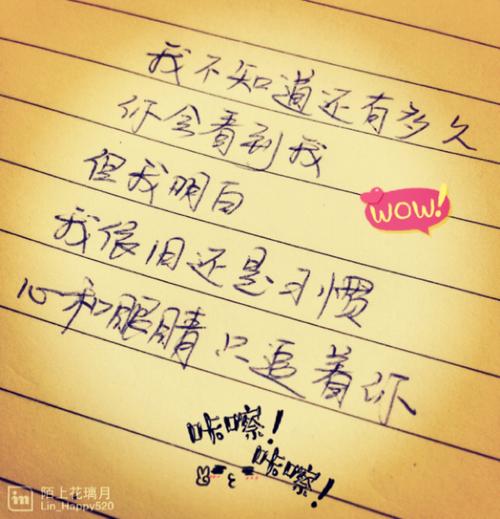 我不知道还有多久
你会看到我
但我明白
WOW!
我依旧还是习惯
心和眼睛只追着你
咔嚓!
咔嚓!
in 陌上花璃月
Lin_Happy520